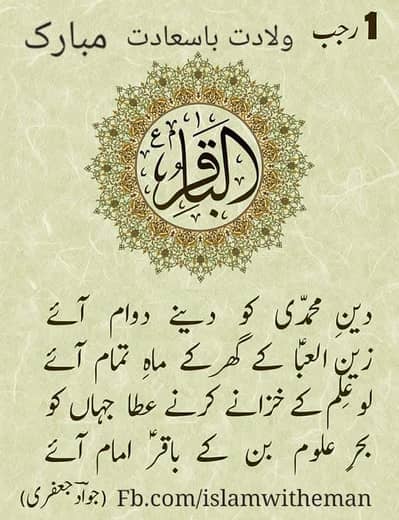 1 رجب ولادت باسعادت مبارک
الباقرؑ
دینِ محمدؐی کو دینے دوام آئے
زین العباؑ کے گھر کے ماہِ تمام آئے
لو عِلم کے خزانے کرنے عطا جہاں کو
بحرِ علوم بن کے باقرؑ امام آئے
(جوادؔ جعفری) Fb.com/islamwitheman